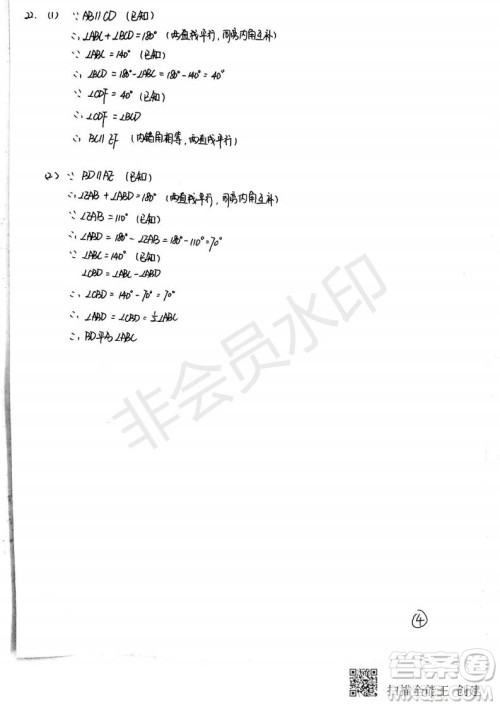 22. (1) ∵ AB∥CD (已知)
∴ ∠ABC + ∠BCD = 180° (两直线平行，同旁内角互补)
∵ ∠ABC = 140° (已知)
∴ ∠BCD = 180° - ∠ABC = 180° - 140° = 40°
∵ ∠CDF = 40° (已知)
∴ ∠CDF = ∠BCD
∴ BC∥EF (内错角相等，两直线平行)
(2) ∵ BD∥AE (已知)
∴ ∠EAB + ∠ABD = 180° (两直线平行，同旁内角互补)
∵ ∠EAB = 110° (已知)
∴ ∠ABD = 180° - ∠EAB = 180° - 110° = 70°
∵ ∠ABC = 140° (已知)
∠CBD = ∠ABC - ∠ABD
∴ ∠CBD = 140° - 70° = 70°
∴ ∠ABD = ∠CBD = ½∠ABC
∴ BD平分∠ABC
非会员水印
④
答案圈
扫描全能王 创建